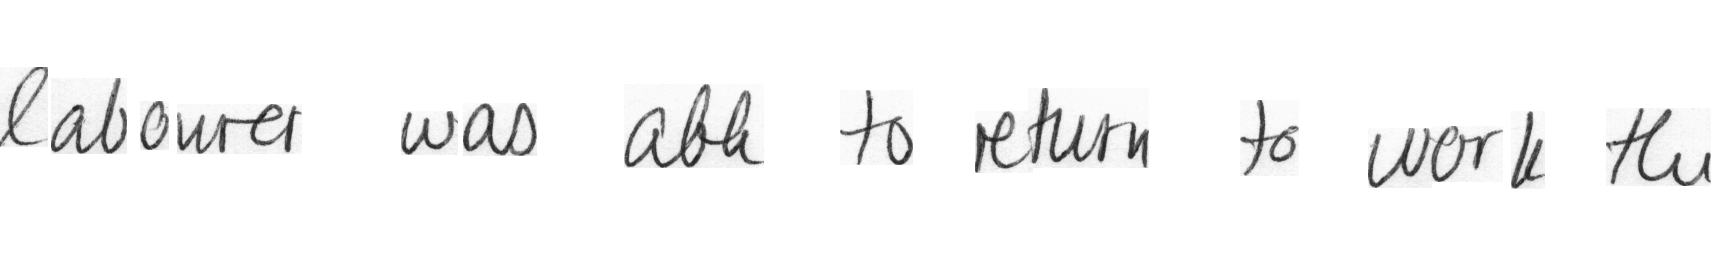 labourer was able to return to work the